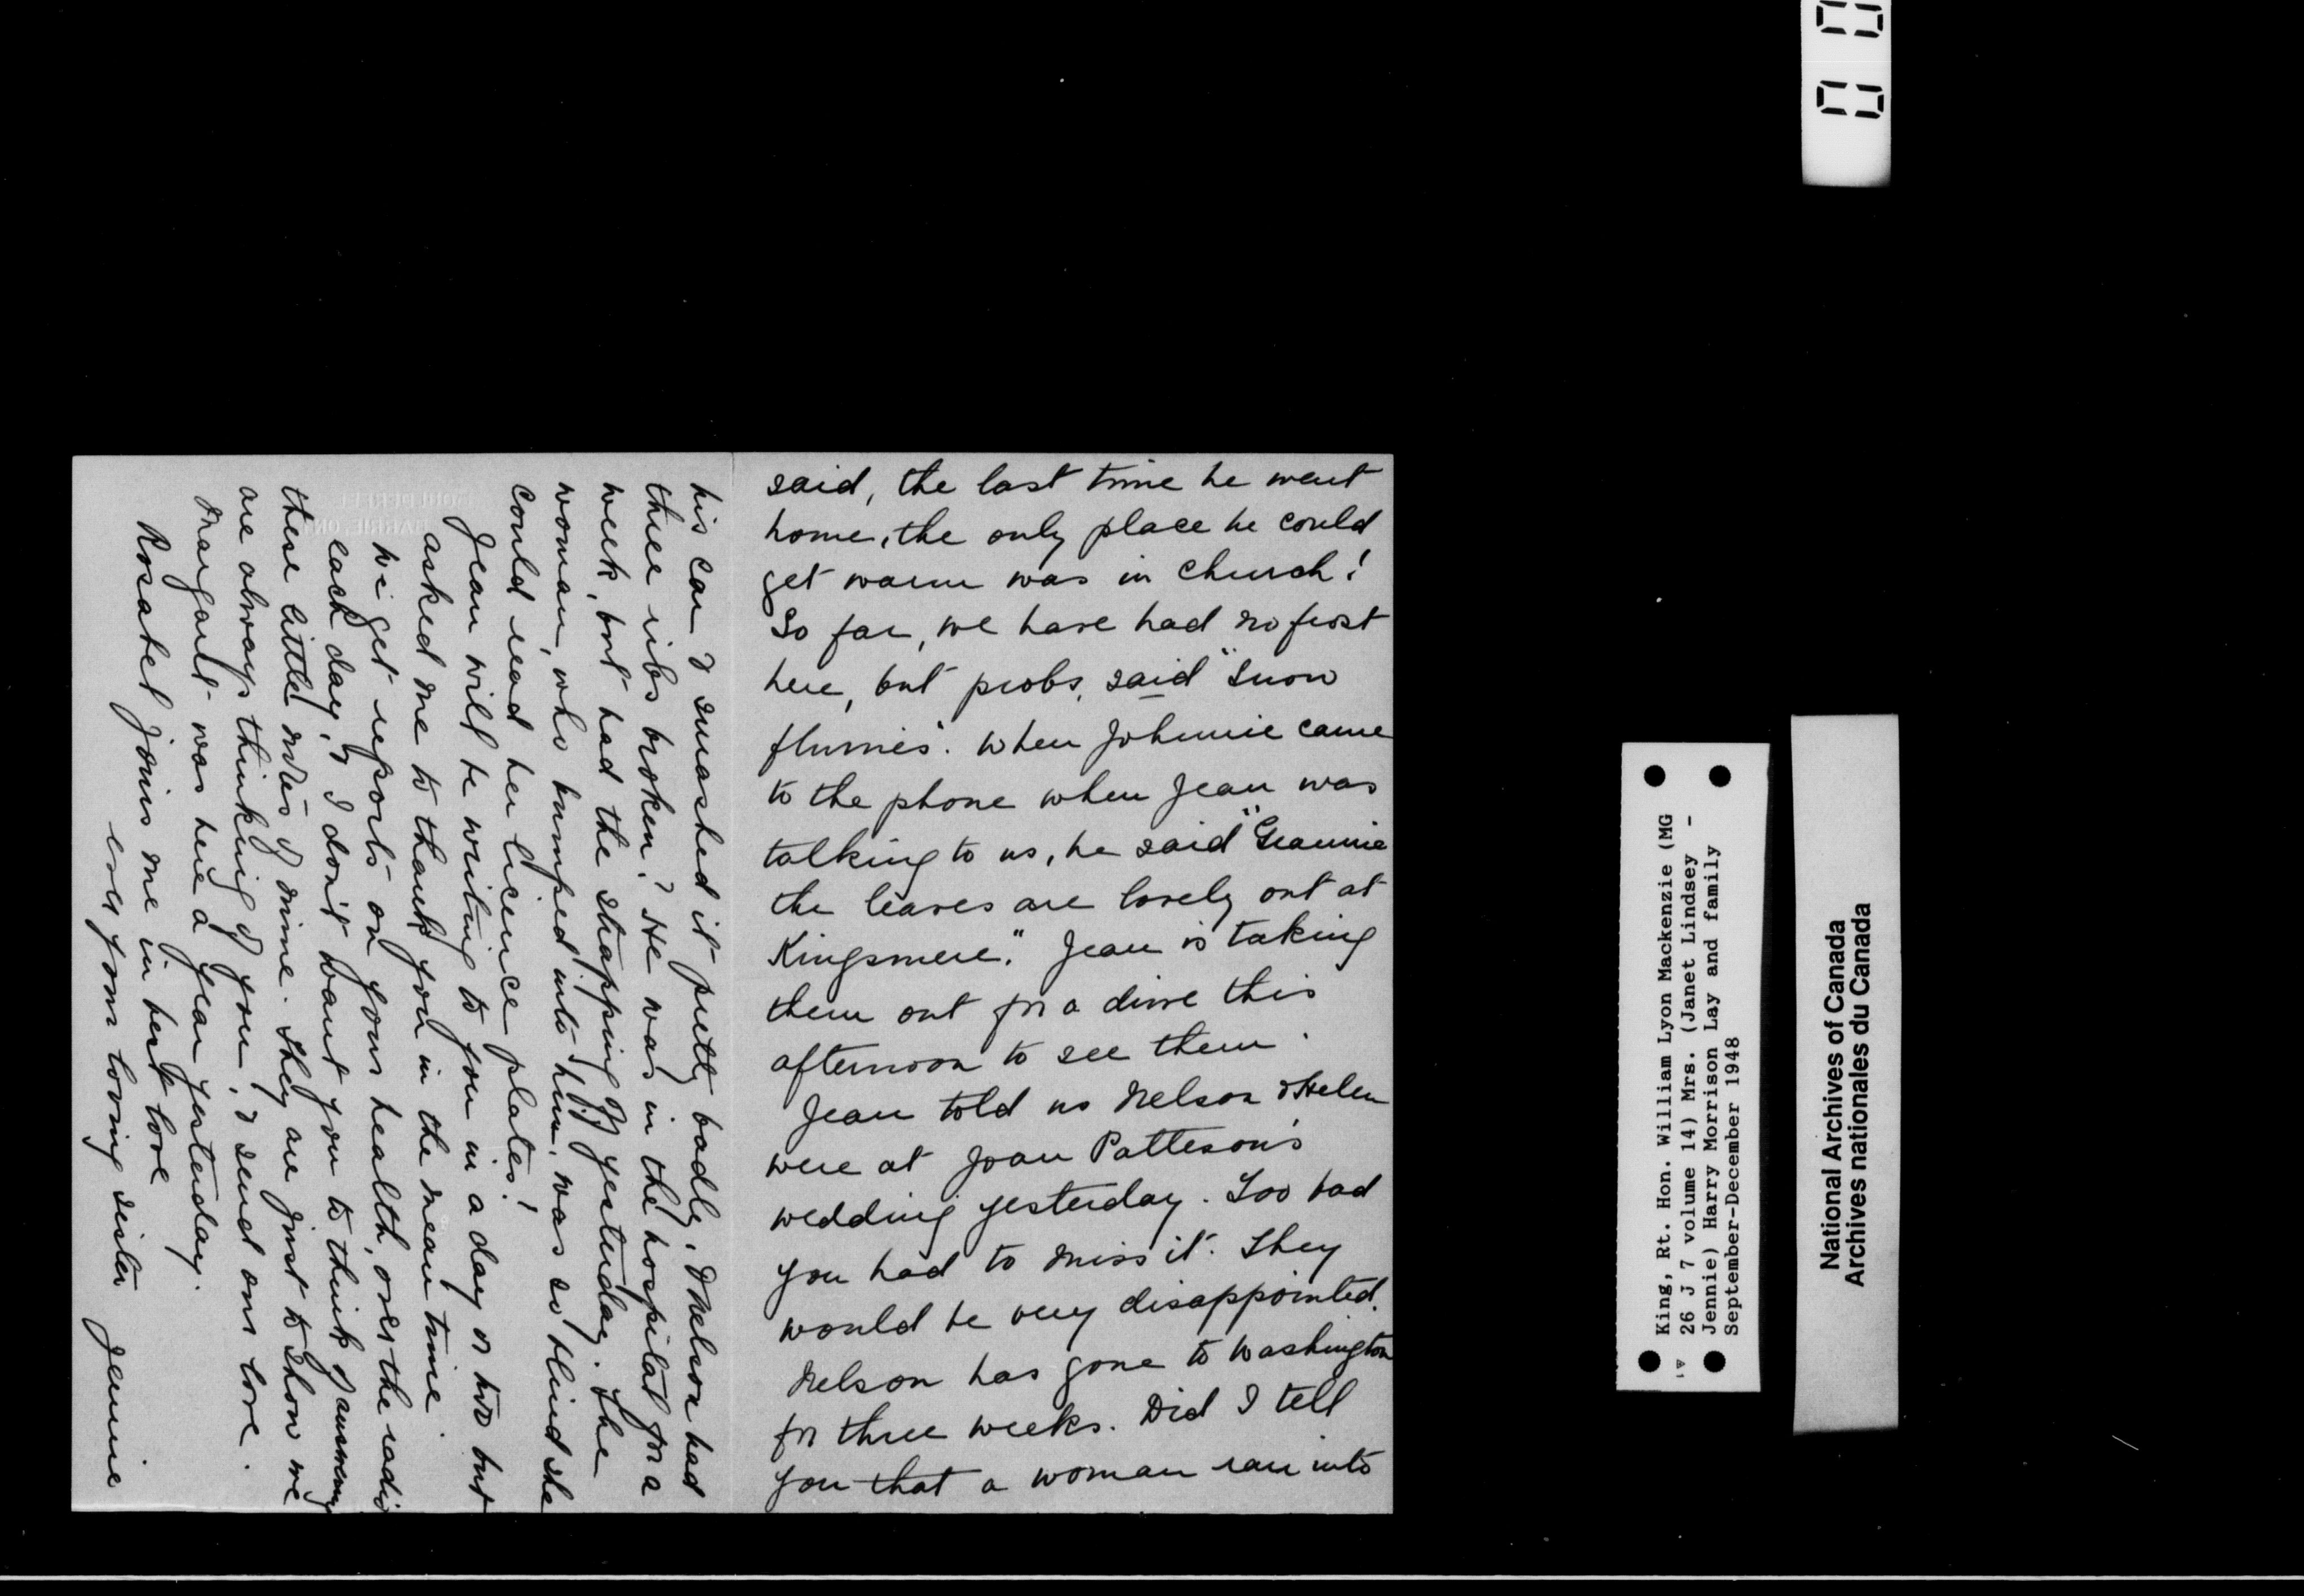 said, the last time he went
home, the only place he could
get warm was in church!
So far, we have had no frost
here, but probs, said "Snow
flurries". When Johnnie came
to the phone when Jean was
talking to us, he said "Grannie
the leaves are lovely out at
Kingsmere." Jean is taking
them out for a drive this
afternoon to see them.
Jean told us Nelson & Helen
were at Joan Patteson's
wedding yesterday. Too bad
you had to miss it. They
would be very disappointed.
Nelson has gone to Washington
for three weeks. Did I tell
you that a woman ran into
his car & smashed it pretty badly, & Nelson had
three ribs broken? He was in the hospital for a
week, but had the strapping off yesterday. The
woman, who bumped into him, was so blind she
could read her licence plates!
Jean will be writing to you in a day or two but
asked me to thank you in the mean time
We get reports on your health, over the radio
each day, & I don't want you to think of answering
these little notes of mine. They are just to show we
are always thinking of you, & send our love.
Margaret was here a year yesterday.
Rosabel joins me in best love
ever your loving sister Jennie
King, Rt. Hon. William Lyon Mackenzie (MG
26 J 7 volume 14) Mrs. (Janet Lindsey -
Jennie) Harry Morrison Lay and family
September-December 1948
National Archives of Canada
Archives nationales du Canada